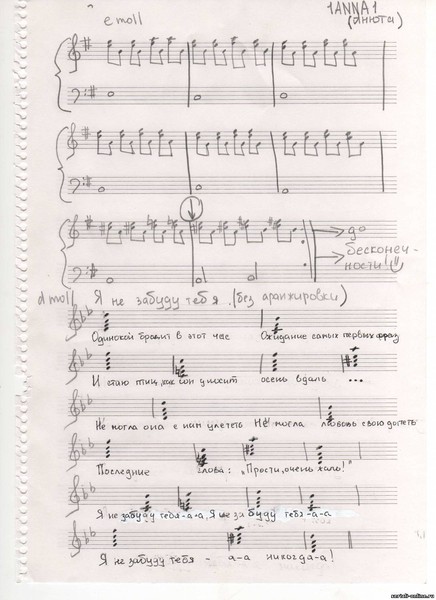 e moll
1ANNA1
(анюта)
до
бесконеч-
ности!
d moll
Я не забуду тебя. (без аранжировки)
Одинокой бродит в этот час Ожидание самых первых фраз
И стаю птиц, как сон уносит осень вдаль ...
Не могла она с ним улететь Не могла любовь свою допеть
Последние слова: „Прости, очень жаль!"
Я не забуду тебя-а-а, Я не забуду тебя-а-а
Я не забуду тебя - а-а никогда-а!
seriali-online.ru